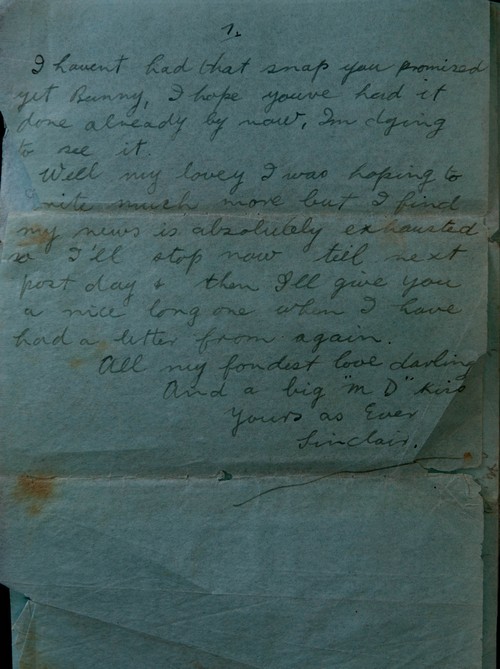 7.
I havent had that snap you promised
yet Bunny, I hope youve had it
done already by now, Im dying
to see it.
Well my lovey I was hoping to
write much more but I find
my news is absolutely exhausted
so I'll stop now till next
post day & then I'll give you
a nice long one when I have
had a letter from again.
All my fondest love darling
And a big "M D" kiss
Yours as Ever
Sinclair.